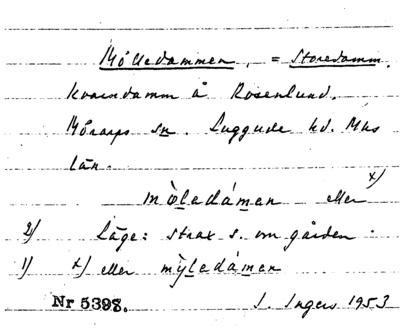 Mölledammen, = Storedamm.
kvarndamm å Rosenlund.
Mörarps sn. Luggude hd. Mhs
län.
mø̀ledámen eller x)
2) Läge: strax s. om gården.
1) x) eller mỳledámen
Nr 5398. I. Ingers 1953